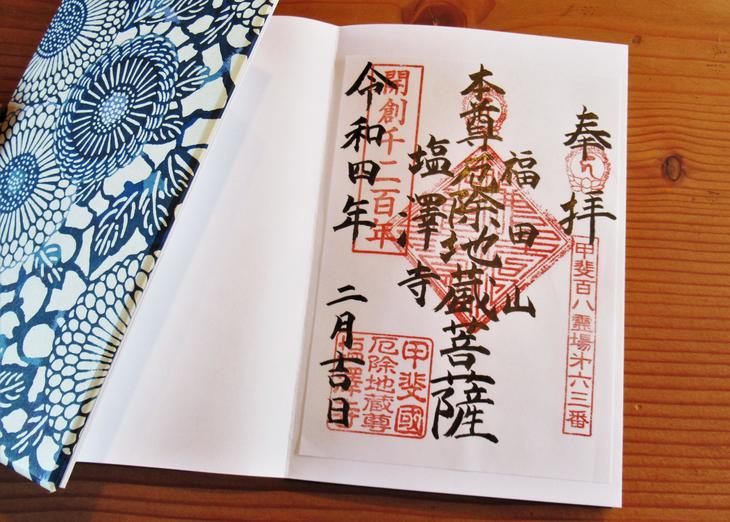 奉拝
甲斐百八霊場第六三番
福田山
本尊厄除地蔵菩薩
塩澤寺
開創千二百年
令和四年 二月吉日
甲斐國
厄除地蔵尊
塩澤寺